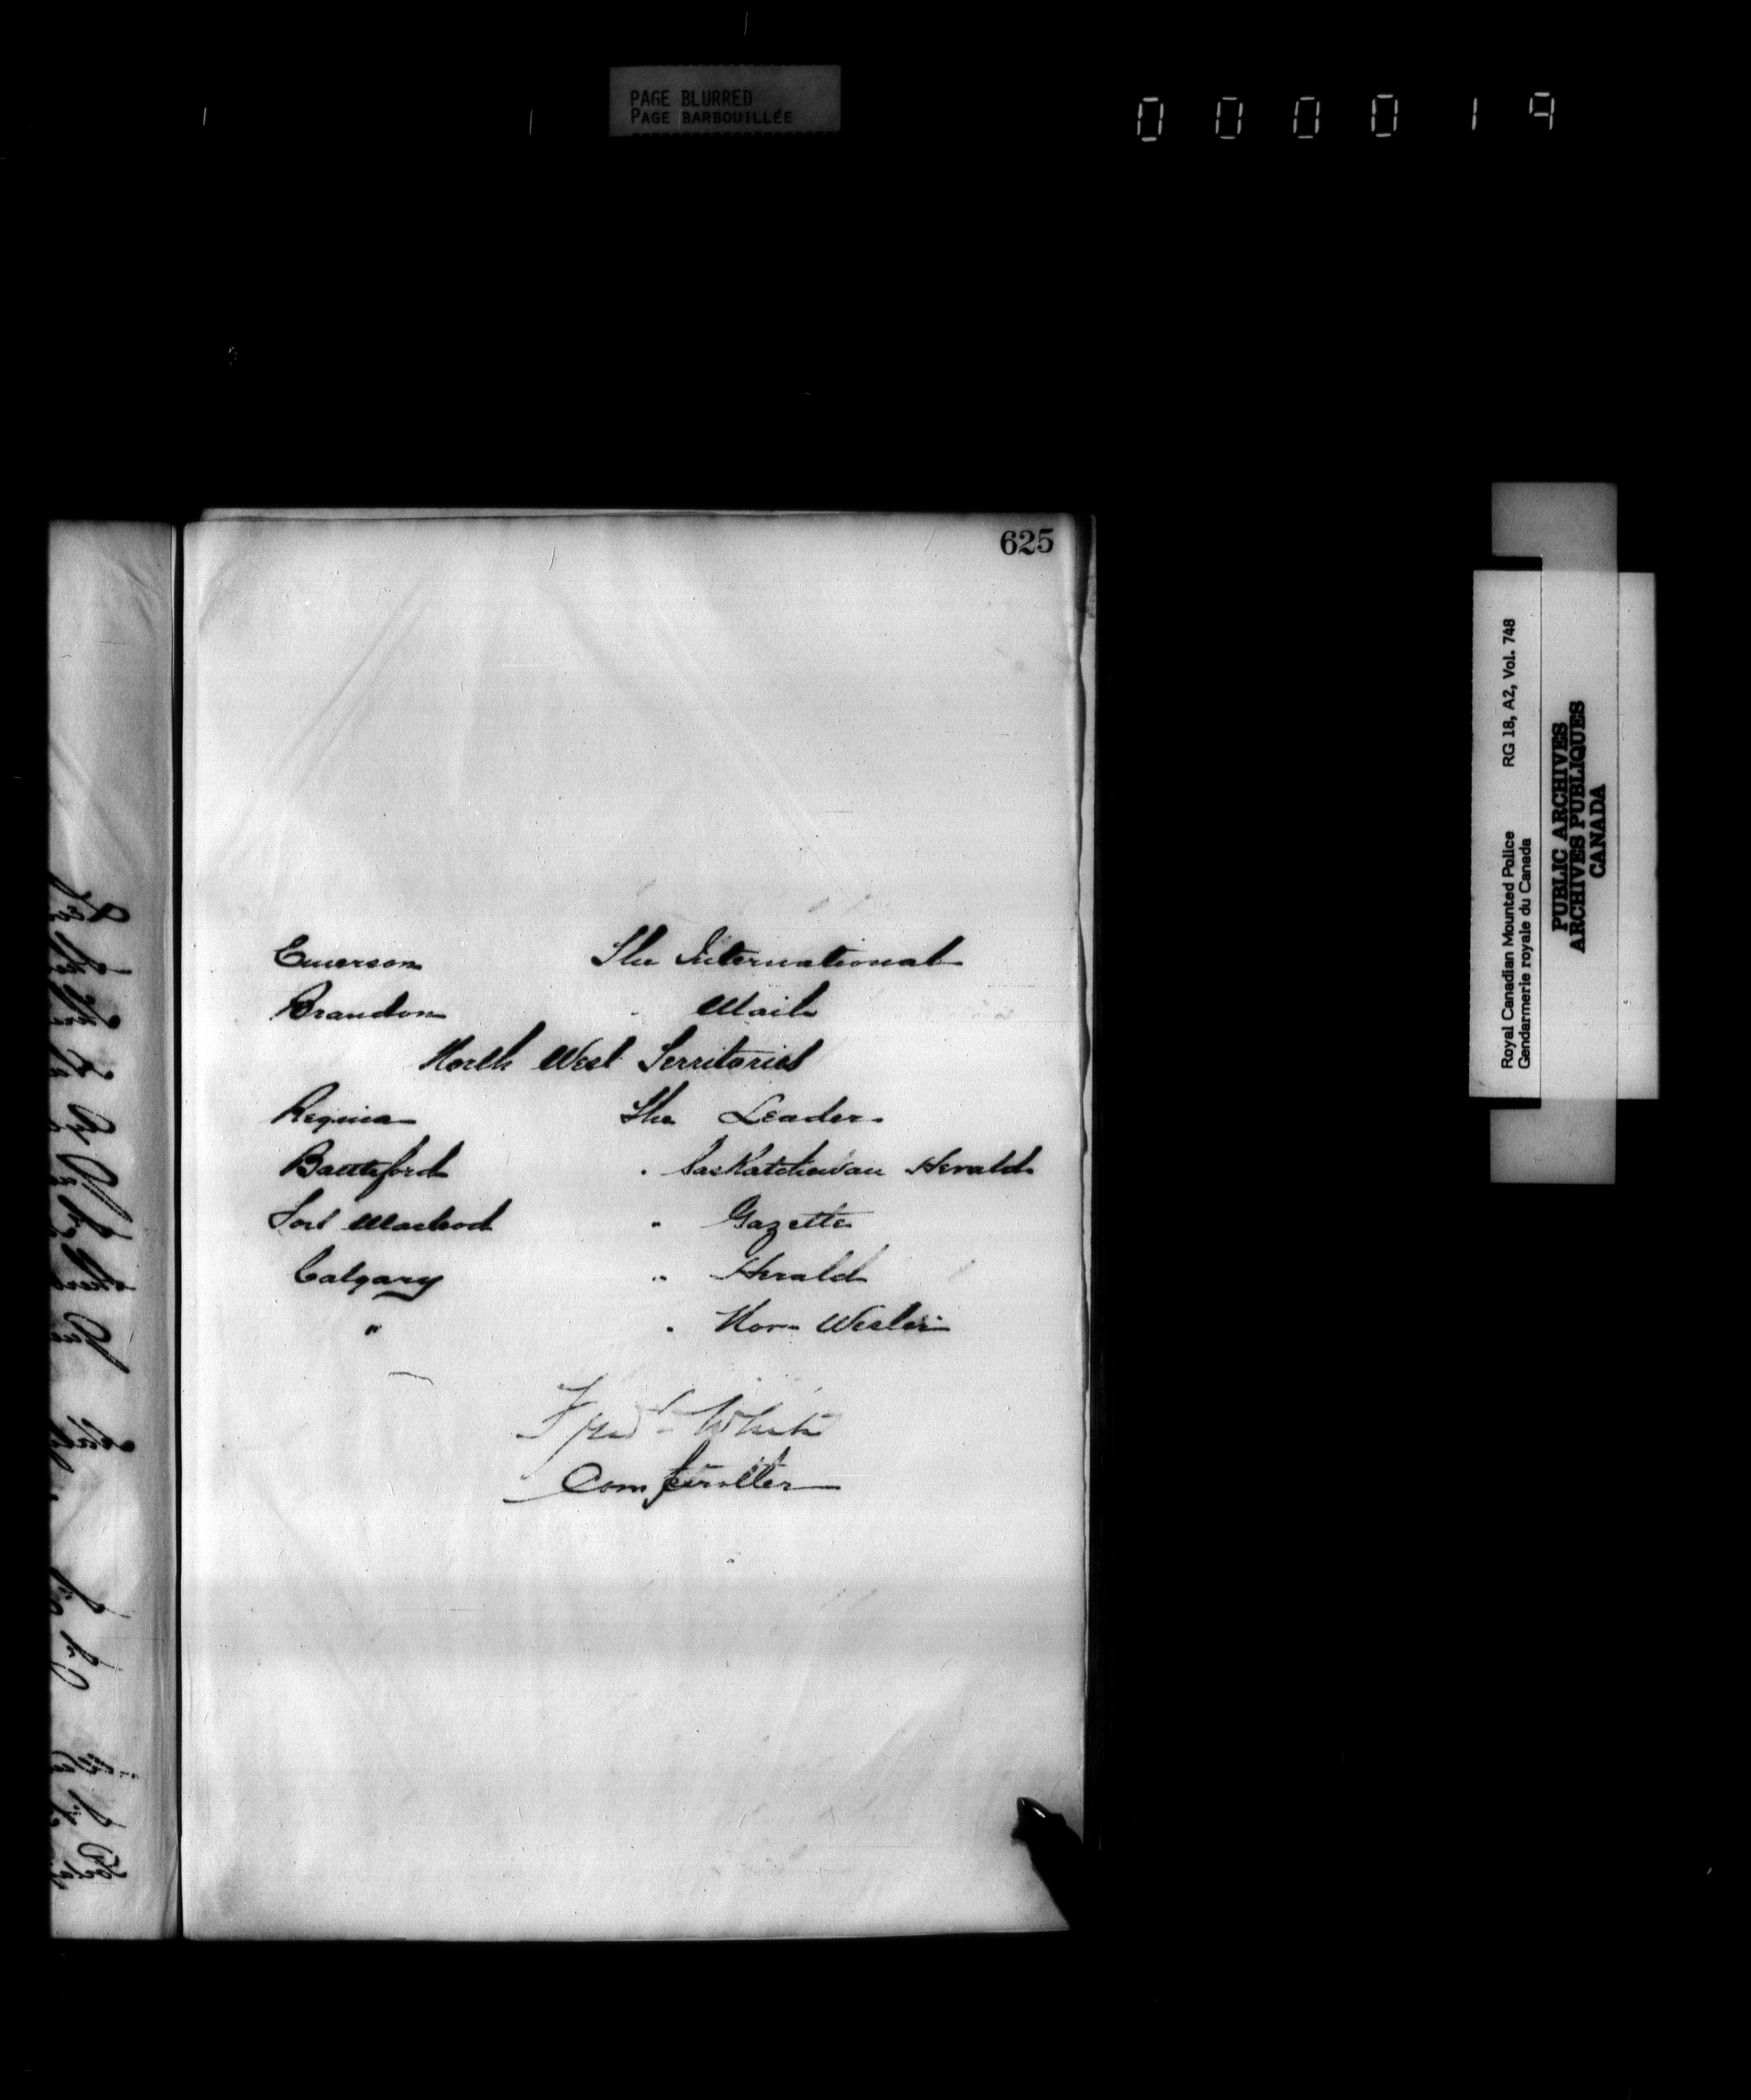 PAGE BLURRED
PAGE BARBOUILLÉE
000019
625
Emerson The International
Brandon " Mail
North West Territories
Regina The Leader
Battleford " Saskatchewan Herald
Fort Macleod " Gazette
Calgary " Herald
" " Nor Wester
Fred White
Comptroller
Royal Canadian Mounted Police RG 18, A2, Vol. 748
Gendarmerie royale du Canada
PUBLIC ARCHIVES
ARCHIVES PUBLIQUES
CANADA